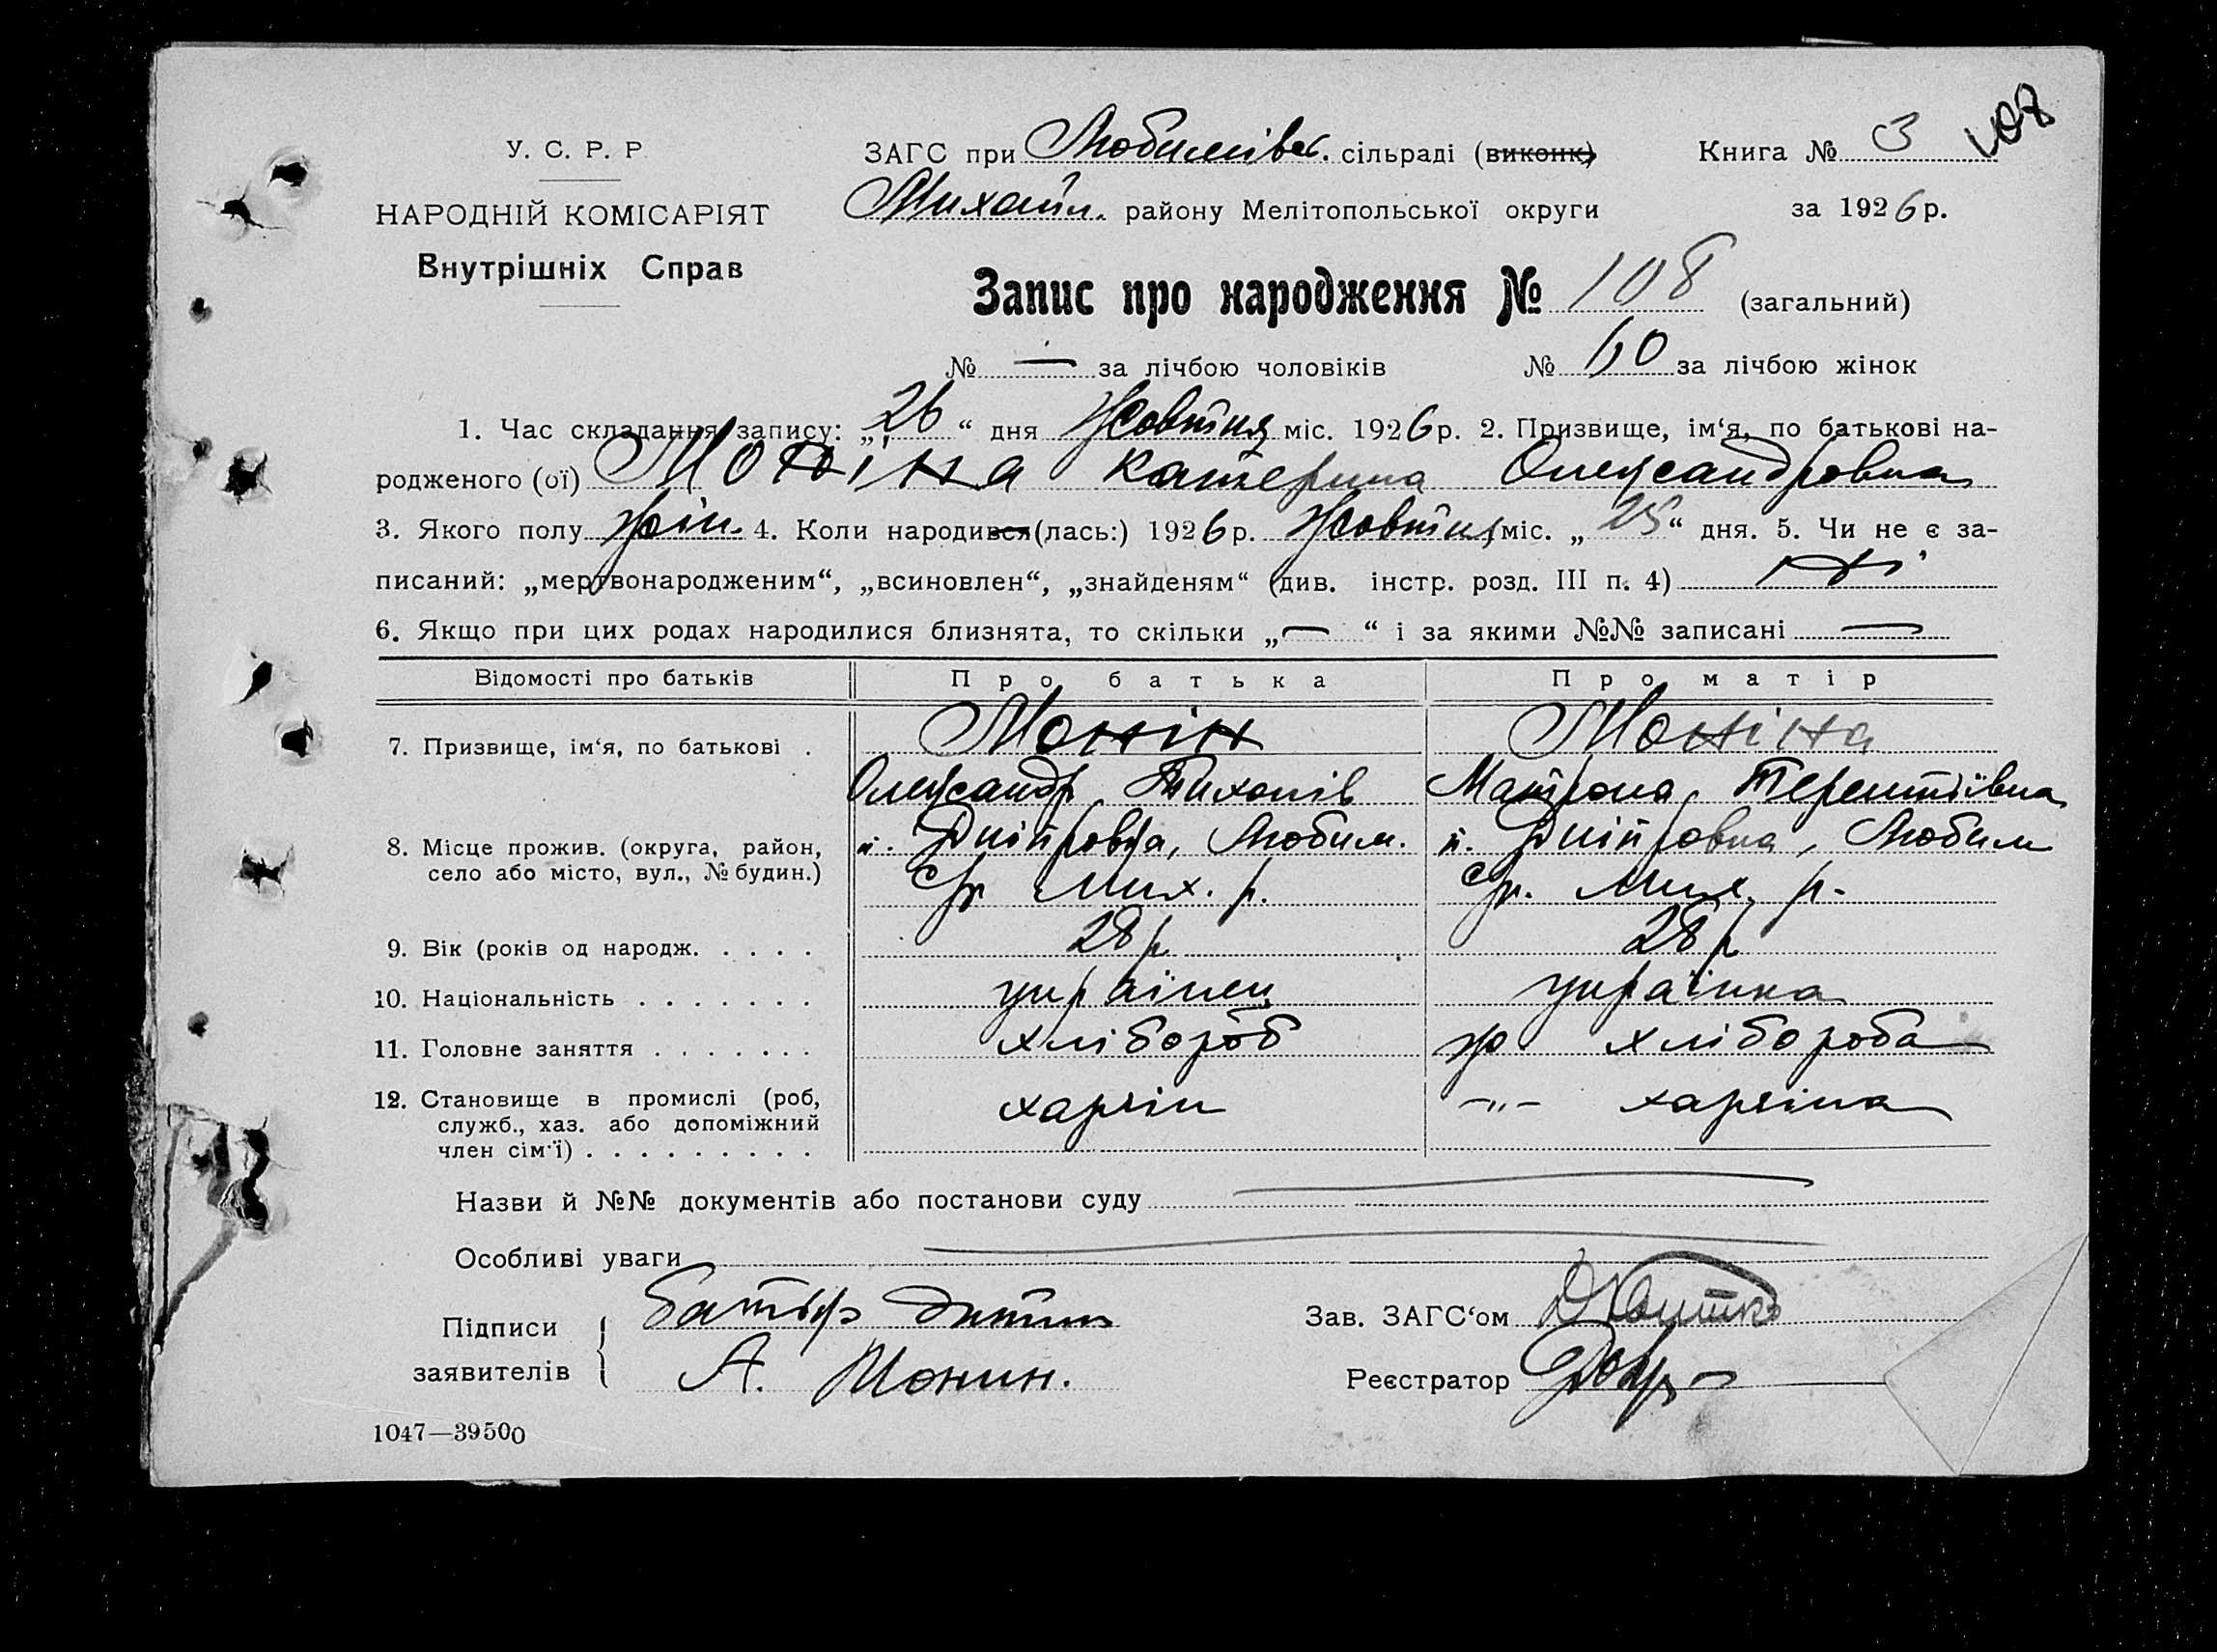 108
У. С. Р. Р
НАРОДНІЙ КОМІСАРІЯТ
Внутрішніх Справ
ЗАГС при Любимівс. сільраді (виконк)
Михайл. району Мелітопольської округи
Книга № 3
за 1926 р.
Запис про народження № 108 (загальний)
№ — за лічбою чоловіків № 60 за лічбою жінок
1. Час складання запису: „26“ дня Жовтня міс. 1926 р. 2. Призвище, ім‘я, по батькові на-
родженого (ої) Моніна Катерина Олександровна
3. Якого полу жін. 4. Коли народився (лась:) 1926 р. Жовтня міс. „25“ дня. 5. Чи не є за-
писаний: „мертвонародженим“, „всиновлен“, „знайденям“ (див. інстр. розд. III п. 4) ні
6. Якщо при цих родах народилися близнята, то скільки „—“ і за якими №№ записані —
Відомості про батьків Про батька Про матір
7. Призвище, ім‘я, по батькові . Монін Моніна
Олександр Тихонів Матрона Терентіївна
8. Місце прожив. (округа, район, село або місто, вул., № будин.) Дніпровка, Любим. Любим
с/р Мих. р. с/р. Мих. р.
9. Вік (років од народж. . . . . 28 р 28 р
10. Національність . . . . . . . українец українка
11. Головне заняття . . . . . . . хлібороб ж. хлібороба
12. Становище в промислі (роб, служб., хаз. або допоміжний член сім'ї) . . . . . . . . . хазяін -"- хазяіна
Назви й №№ документів або постанови суду
Особливі уваги
Підписи заявителів батько дитини
А. Монин.
Зав. ЗАГС‘ом
Реєстратор
1047—39500